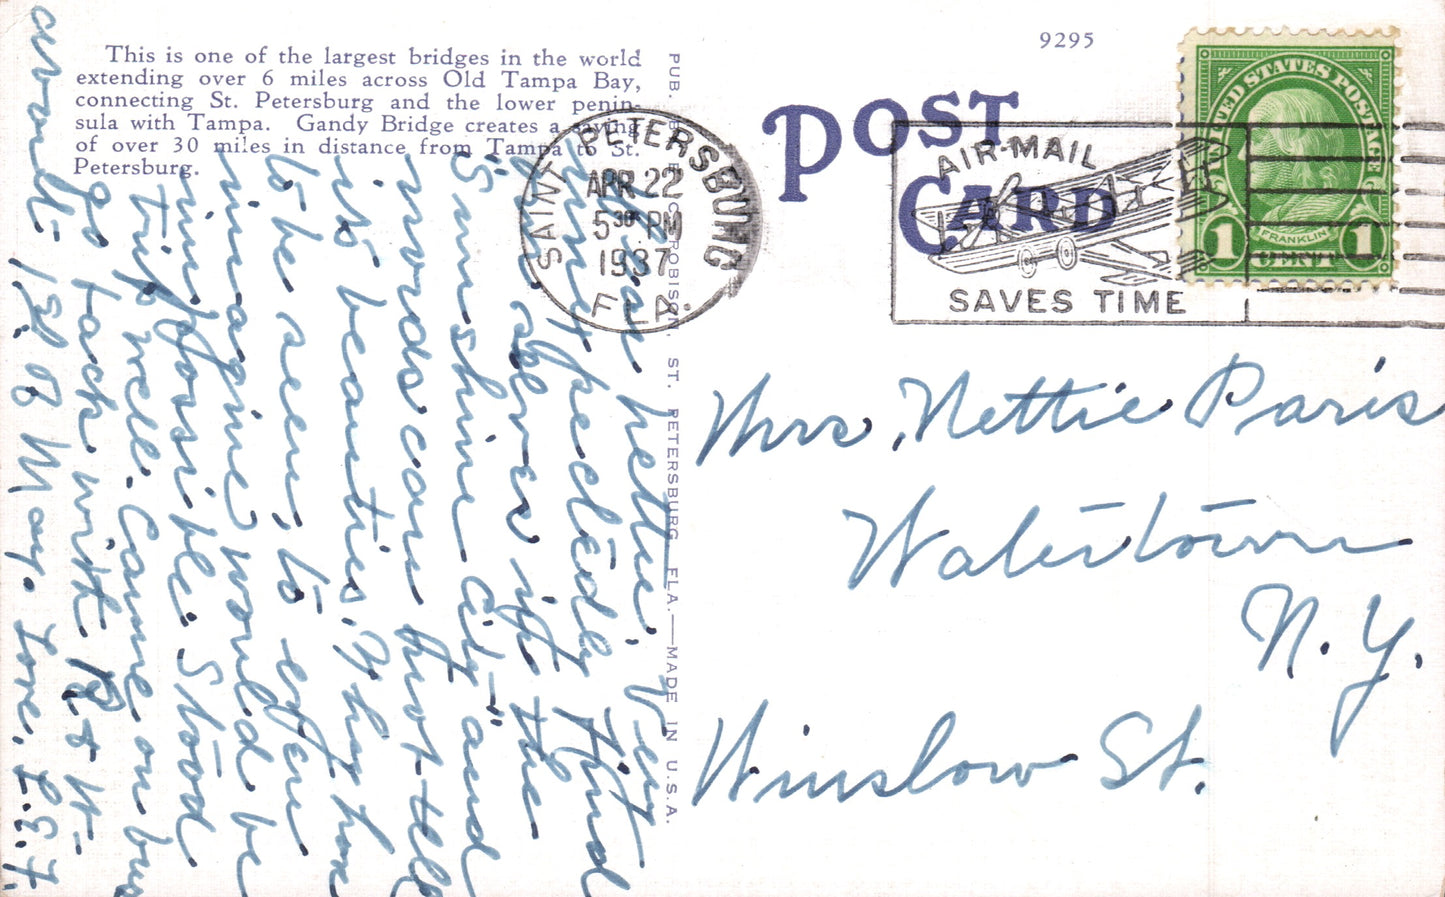 This is one of the largest bridges in the world
extending over 6 miles across Old Tampa Bay,
connecting St. Petersburg and the lower penin-
sula with Tampa. Gandy Bridge creates a saving
of over 30 miles in distance from Tampa to St.
Petersburg.
9295
POST
CARD
SAINT PETERSBURG
APR 22
5 30 PM
1937
FLA.
AIR-MAIL
SAVES TIME
UNITED STATES POSTAGE
FRANKLIN
1 CENT 1
PUB. ROBISON, ST. PETERSBURG, FLA.—MADE IN U.S.A.
Nettie, Very
unexpectedly find
selves in the
"Sunshine City" and
words can not tell
its beauties. They have
to be seen to
imagine would be
impossible. Stood
trip well. Came on bus
go back with
around 1st of May. Love, L.L.F.
Mrs. Nettie Paris
Watertown
N.Y.
Winslow St.